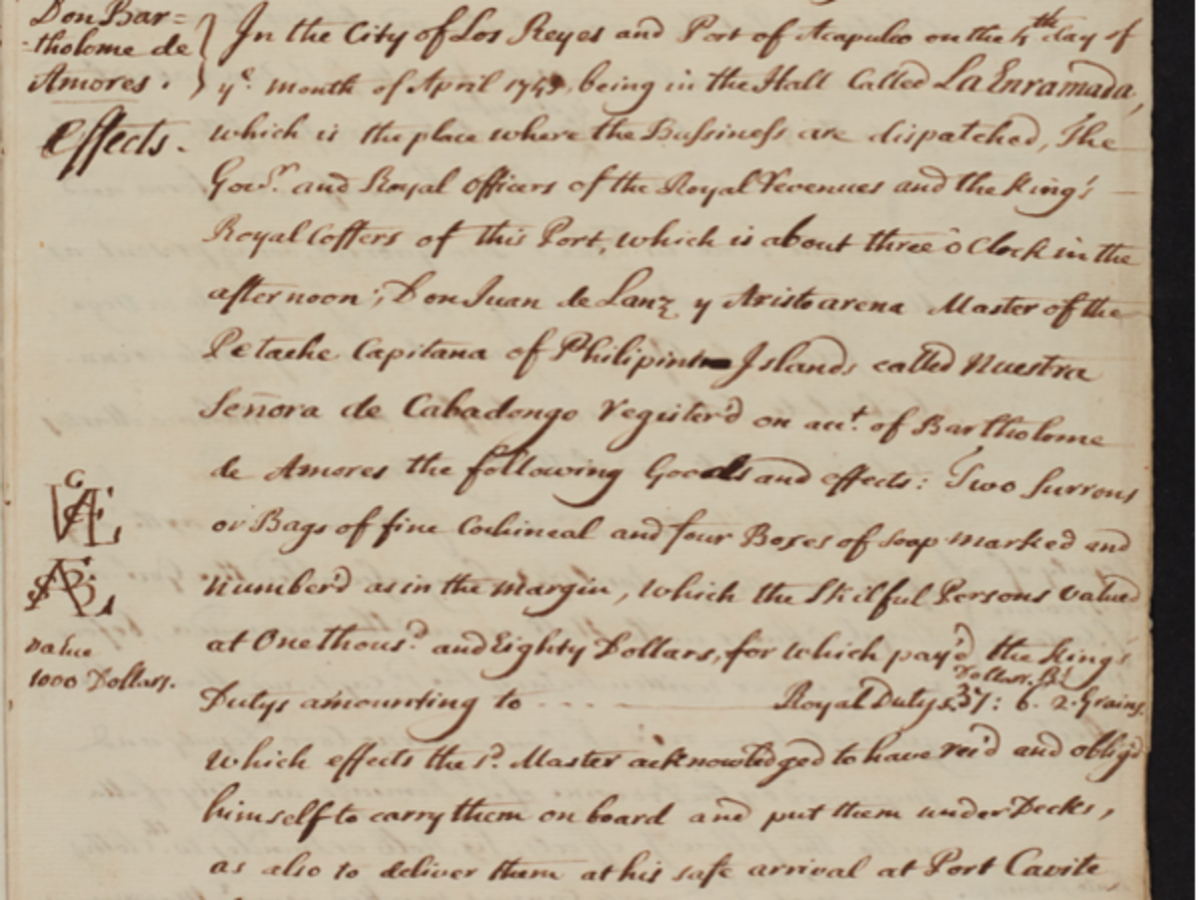 Don Bar=
-tholome de
Amores.
effects.
In the City of Los Reyes and Port of Acapulco on the 4th day of
ye. month of April 1743, being in the Hall Called La Enramada,
which is the place where the Bussiness are dispatched, The
Govr. and Royal officers of the Royal Revenues and the King's
Royal Coffers of this Port, which is about three o Clock in the
afternoon; Don Juan de Lanz y Aristoarena Master of the
Petache Capitana of Philipine Islands called Nuestra
Señora de Cabadongo register'd on acct. of Bartholome
de Amores the following Goods and effects: Two Surrons
or Bags of fine Cochineal and four Boxes of soap marked and
number'd as in the margin, which the Skilful Persons valued
at One thousd. and Eighty Dollars, for which pay'd the Kings
Dutys amounting to - - - - Royal Dutys 37: 6. 2. Grains.
Dollars. Rs.
value
1000 Dollars.
Which effects the sd. Master acknowledged to have rec'd and oblig'd
himself to carry them on board and put them under Decks,
as also to deliver them at his safe arrival at Port Cavite